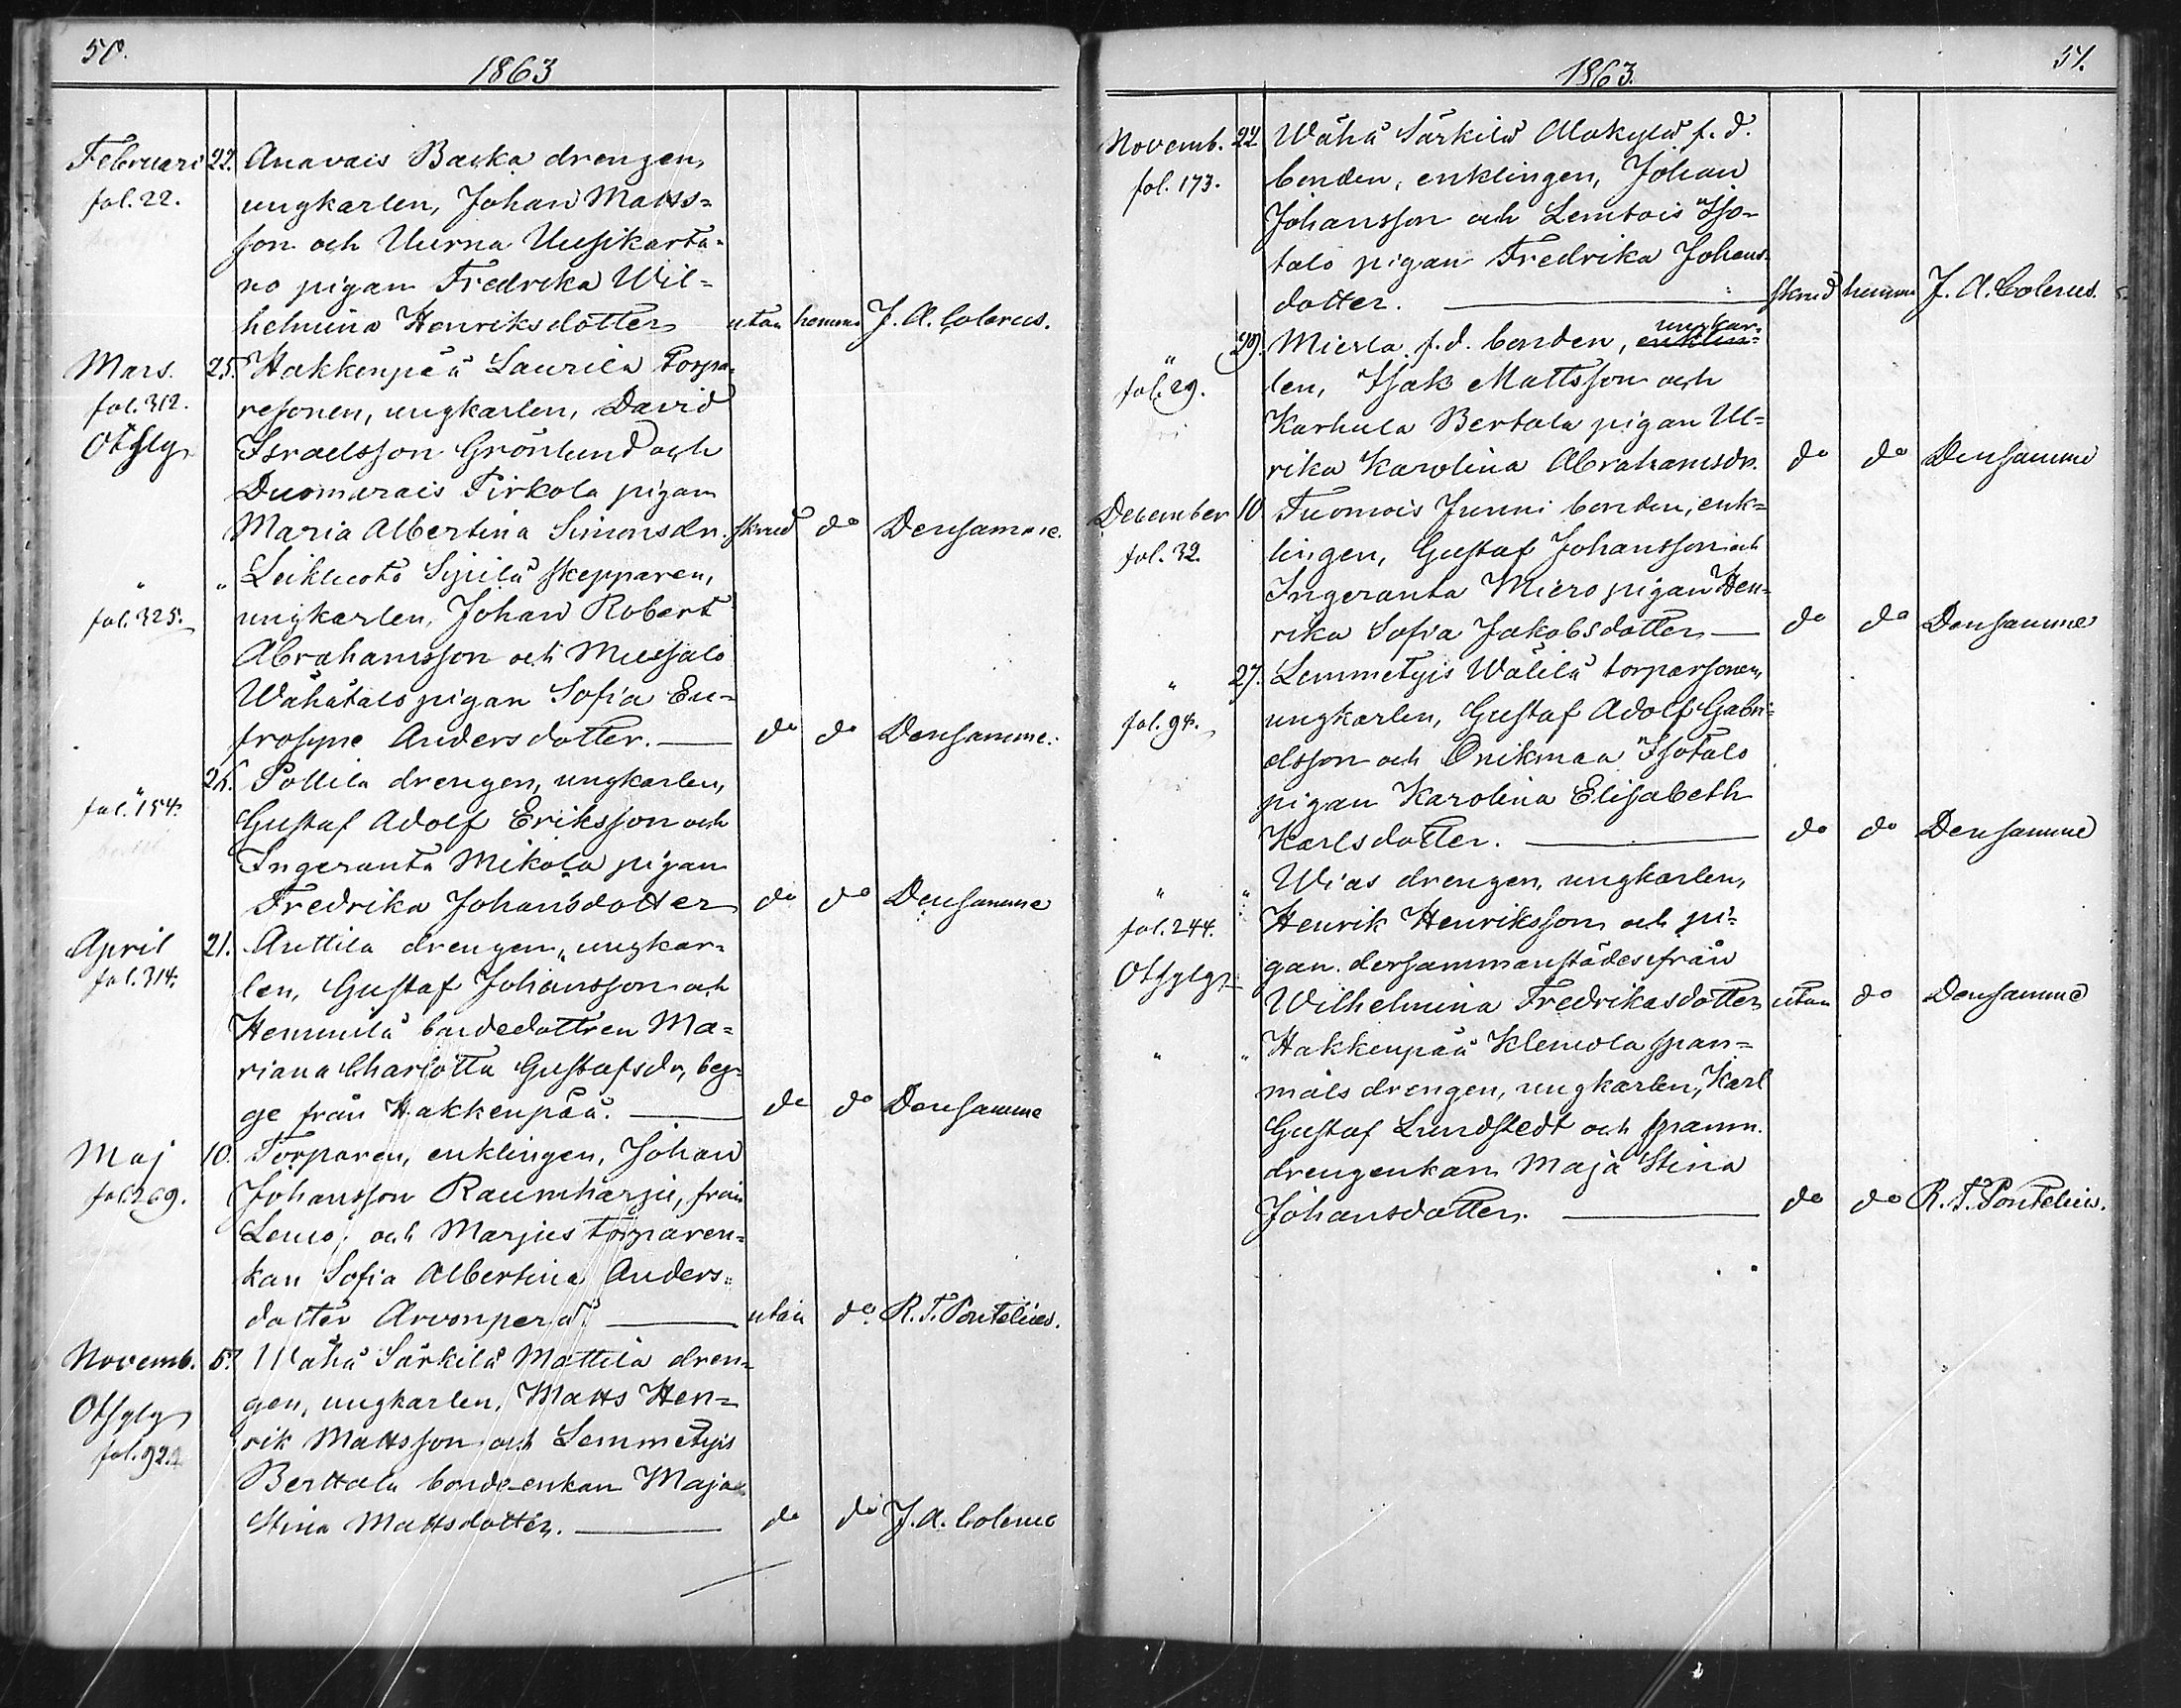 50.
1863
Februari 22. Anavais Backa drengen,
fol. 22. ungkarlen, Johan Matts=
son och Uurna Uusikarta=
no pigan Fredrika Wil=
helmina Henriksdotter utan hemma J. A. Colerus.
Mars. 25. Hakkenpää Laurila torpa=
fol. 312. resonen, ungkarlen, David
Otfslg Israelsson Grönlund och
Duomarais Pirkola pigan
Maria Albertina Simonsdr. skrud do Densamme.
" " Leikluoto Sipilä skepparen,
fol. 325. ungkarlen, Johan Robert
Abrahamsson och Mussalo
Wähätalo pigan Sofia Eu=
frosyne Andersdotter. — do do Densamme.
" 26. Pollila drengen, ungkarlen,
fol. 154. Gustaf Adolf Eriksson och
Ingeranta Mikola pigan
Fredrika Johansdotter do do Densamme
April 21. Anttila drengen, ungkar=
fol. 314. len, Gustaf Johansson och
Hemmilä bondedottren Ma=
riana Charlotta Gustafsdr, beg=
ge från Hakkenpää. — do do Densamme
Maj 10. Torparen, enklingen, Johan
fol. 269. Johansson Raumharju, från
Lemo, och Marjus torparen=
kan Sofia Albertina Anders=
dotter Arvonperä. — utan do R. T. Pontelius.
Novemb. 5. Wähä Särkilä Mattila dren=
Otfslg gen, ungkarlen, Matts Hen=
fol. 92. rik Mattsson och Lemmetyis
Berttala bondeenkan Maja
Stina Mattsdotter. — do do J. A. Colerus
51.
1863.
Novemb. 22. Wähä Särkilä Alakylä f. d.
fol. 173. bonden, enklingen, Johan
Johansson och Lemtois Iso=
talo pigan Fredrika Johans=
dotter. — skrud hemma J. A. Colerus.
ungkar=
" 29. Mierla f. d. bonden, enklin=
fol. 29. len, Isak Mattsson och
Karhula Bertala pigan Ul=
rika Karolina Abrahamsdr. do do Densamme
December 10. Tuomois Junni bonden, enk=
fol. 32. lingen, Gustaf Johansson och
Ingeranta Miero pigan Hen=
rika Sofia Jakobsdotter — do do Densamme
" 27. Lemmetyis Wälilä torparsonen,
fol. 94. ungkarlen, Gustaf Adolf Gabri=
elsson och Onikmaa Isotalo
pigan Karolina Elisabeth
Karlsdotter. — do do Densamme
" " Wias drengen, ungkarlen,
fol. 244. Henrik Henriksson och pi=
Otfslg gan dersammanstädes ifrån
Wilhelmina Fredrikasdotter utan do Densamme
" " Hakkenpää Klemola span=
måls drengen, ungkarlen, Karl
Gustaf Lundstedt och spanm.
drengenkan Maja Stina
Johansdotter. — do do R. T. Pontelius.